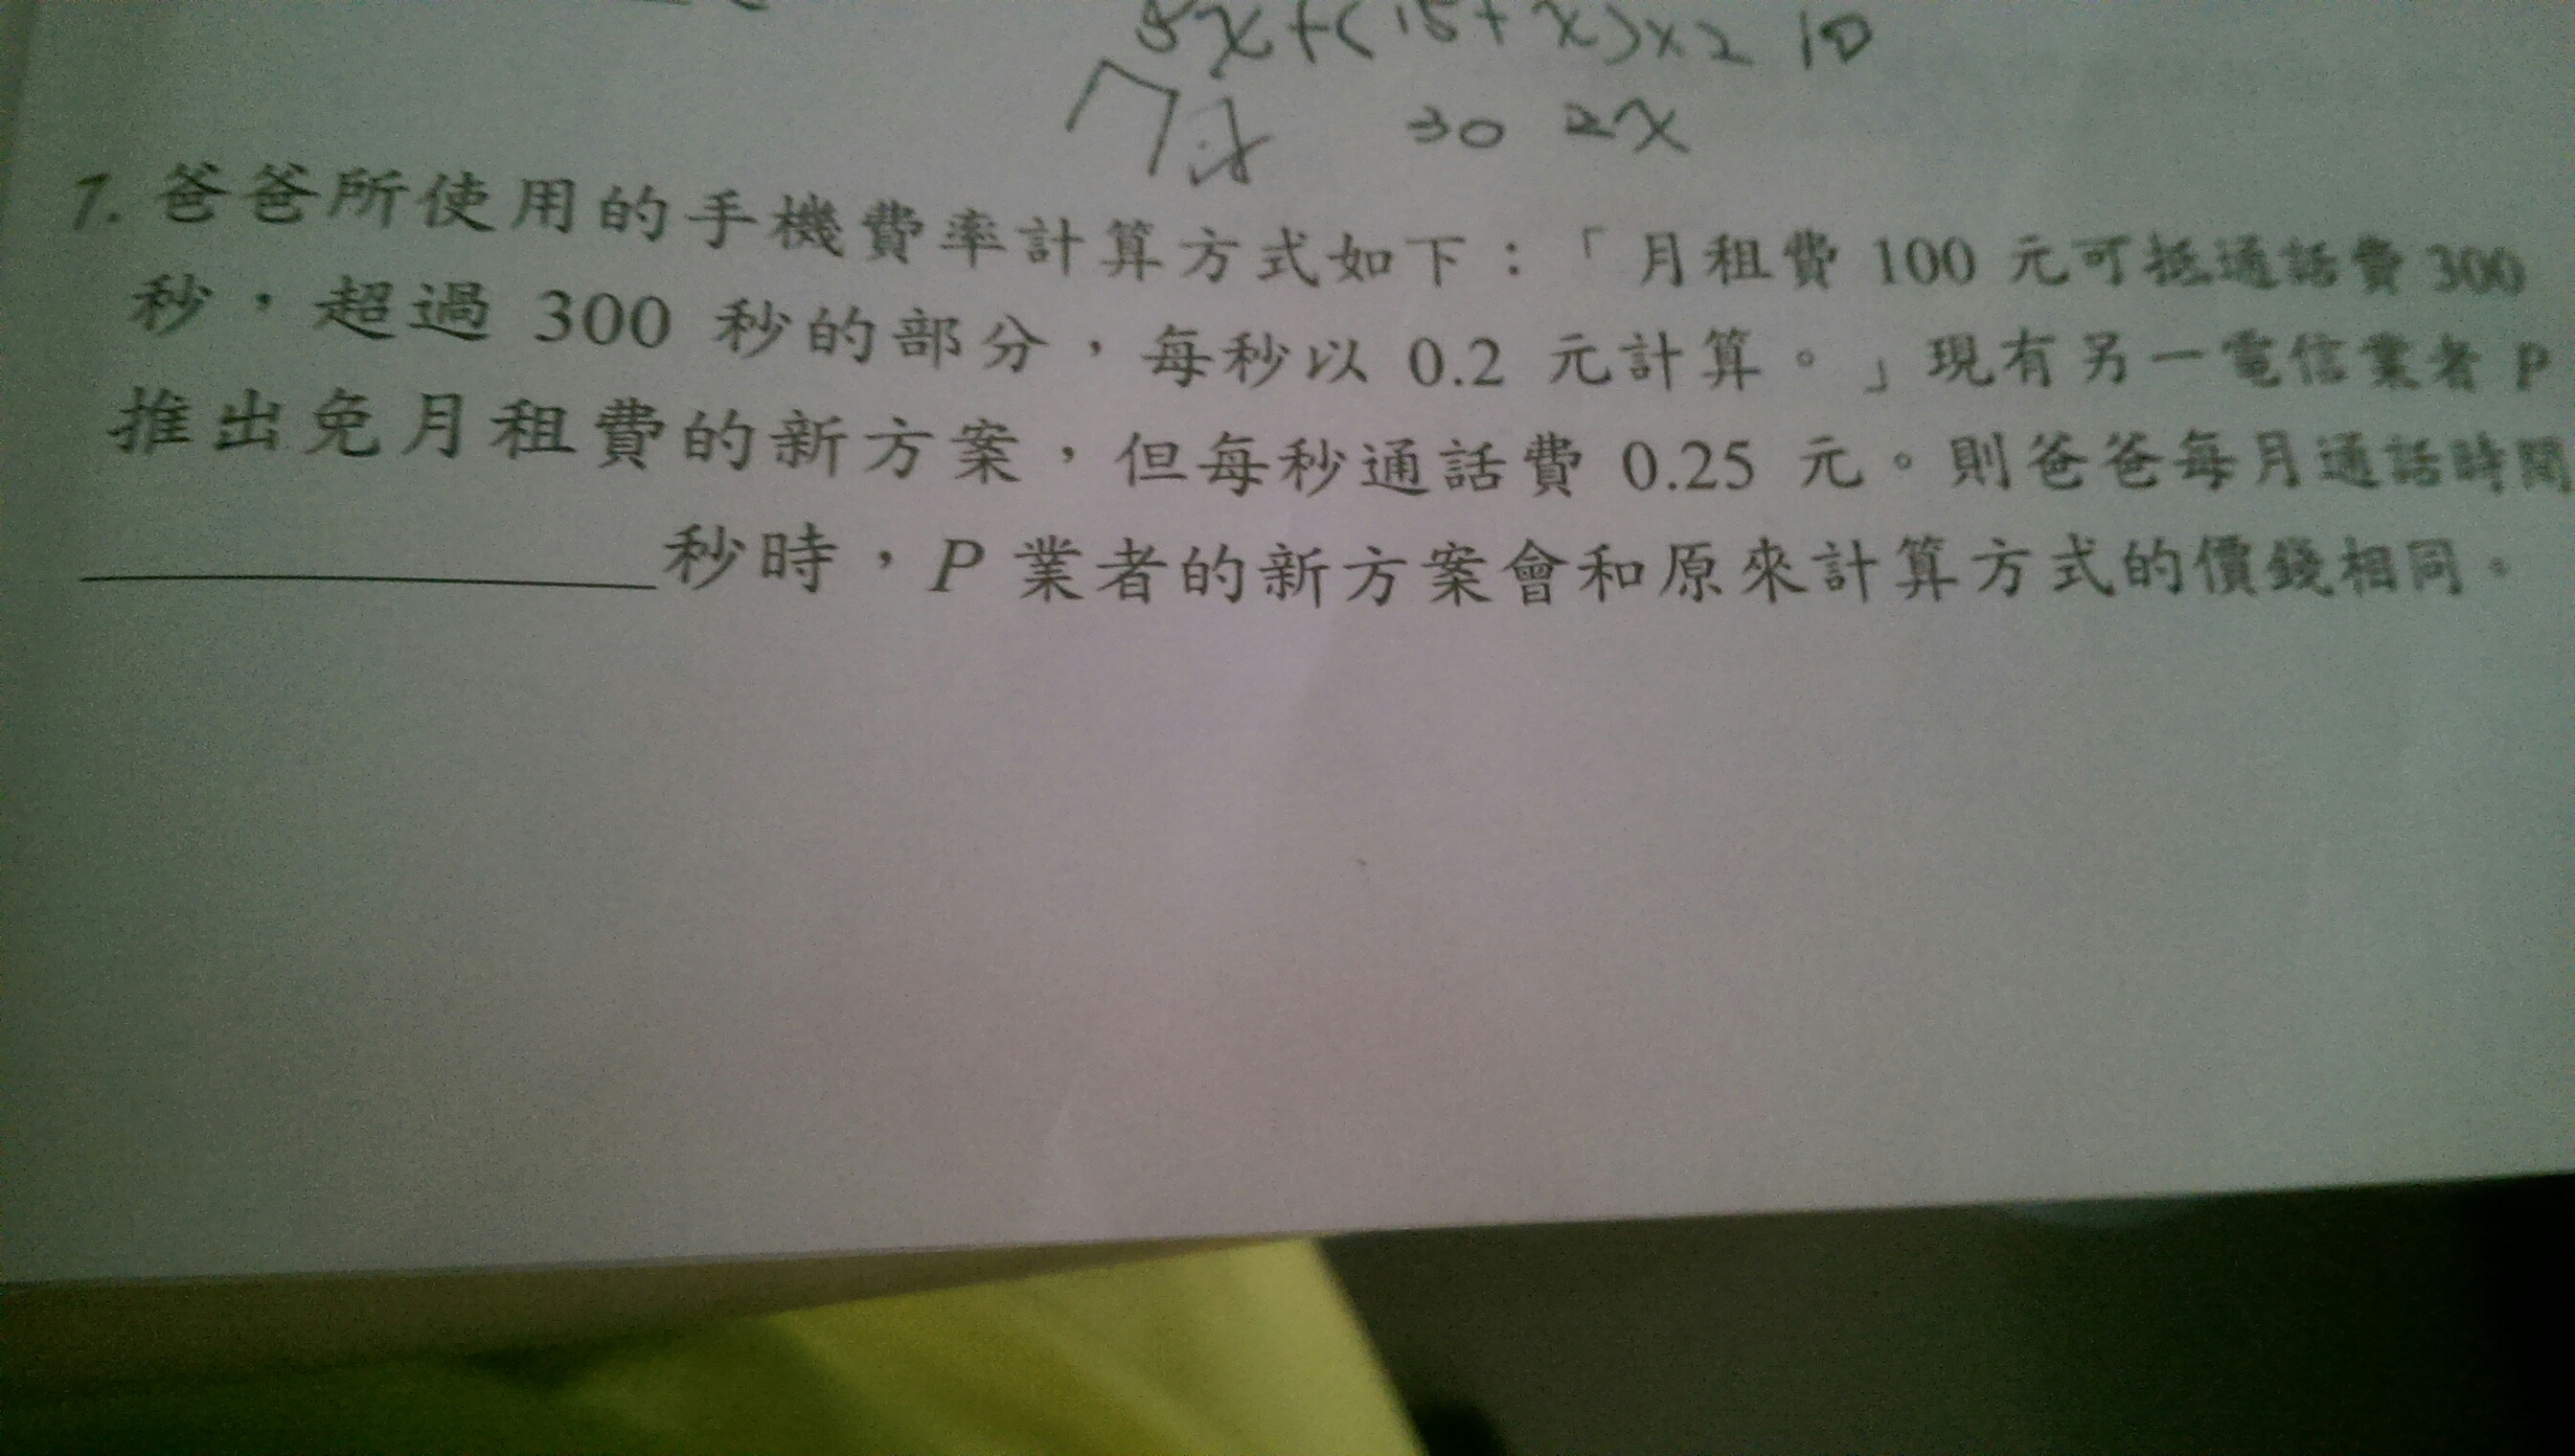 8x+(15+x)x2 10
30 2x
7. 爸爸所使用的手機費率計算方式如下：「月租費 100 元可抵通話費 300
秒，超過 300 秒的部分，每秒以 0.2 元計算。」現有另一電信業者 P
推出免月租費的新方案，但每秒通話費 0.25 元。則爸爸每月通話時間
秒時，P 業者的新方案會和原來計算方式的價錢相同。